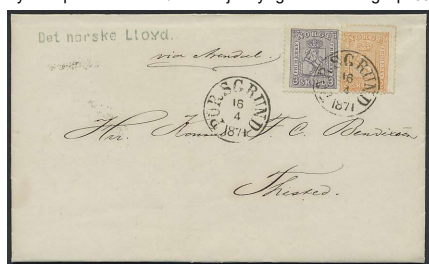 Det norske Lloyd.
via Arendal.
NORGE
PORSGRUND
16
4
1871
PORSGRUND
16
4
1871
Hr. F. C. Bendixen
Thisted.